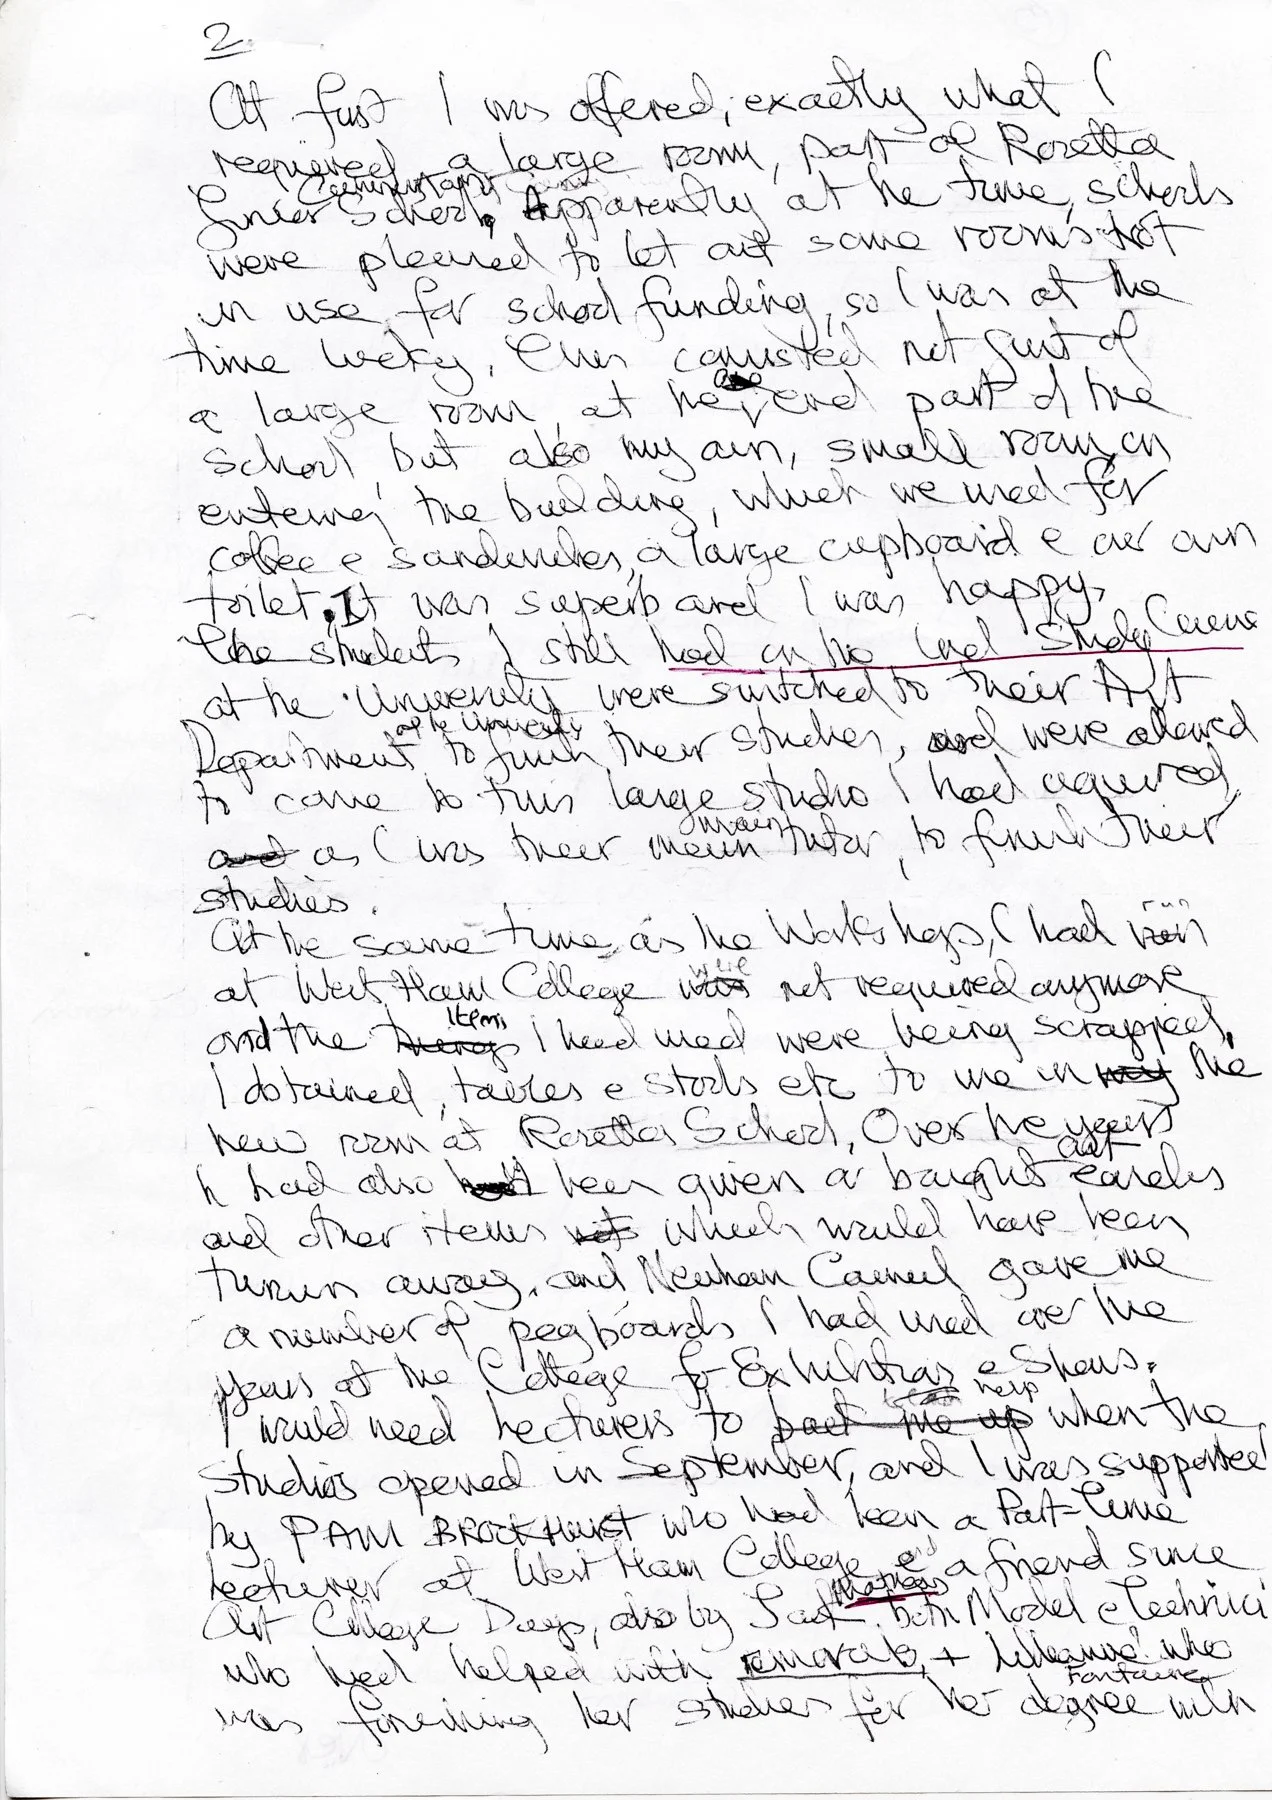 2
At first I was offered, exactly what I
required, a large room, part of Rosetta
Community
Junior School. Apparently at the time, schools
were pleased to let out some rooms not
in use for school funding, so I was at the
time lucky. This consisted not just of
a large room, at the one end part of the
school, but also my own, small room, on
entering the building, which we used for
coffee & sandwiches, a large cupboard & our own
toilet. It was superb and I was happy.
The students I still had on the Ind Study Course
at the University were switched to their Art
at the University
Department to finish their studies, and were allowed
to come to this large studio I had aquired,
main
and as I was their main tutor, to finish their
studies.
run
At the same time, as the Workshops, I had run
were
at West Ham College was not required anymore
Items
and the things I had used were being scrapped,
I obtained, tables & stools etc to use in my the
new room at Rosetta School. Over the years
art
I had also had been given or bought easels
and other items which would have been
thrown away, and Newham Council gave me
a number of pegboards I had used over the
years at the College for Exhibitions & Shows.
help
I would need Lecturers to back me up when the
Studios opened in September, and I was supported
by PAM BROCKHURST who had been a Part-Time
and
Lecturer at West Ham College & a friend since
Mathews
Art College Days, also by Jack both Model & Technici
who had helped with removals, + who
Fontaine
was finishing her studies for her degree with